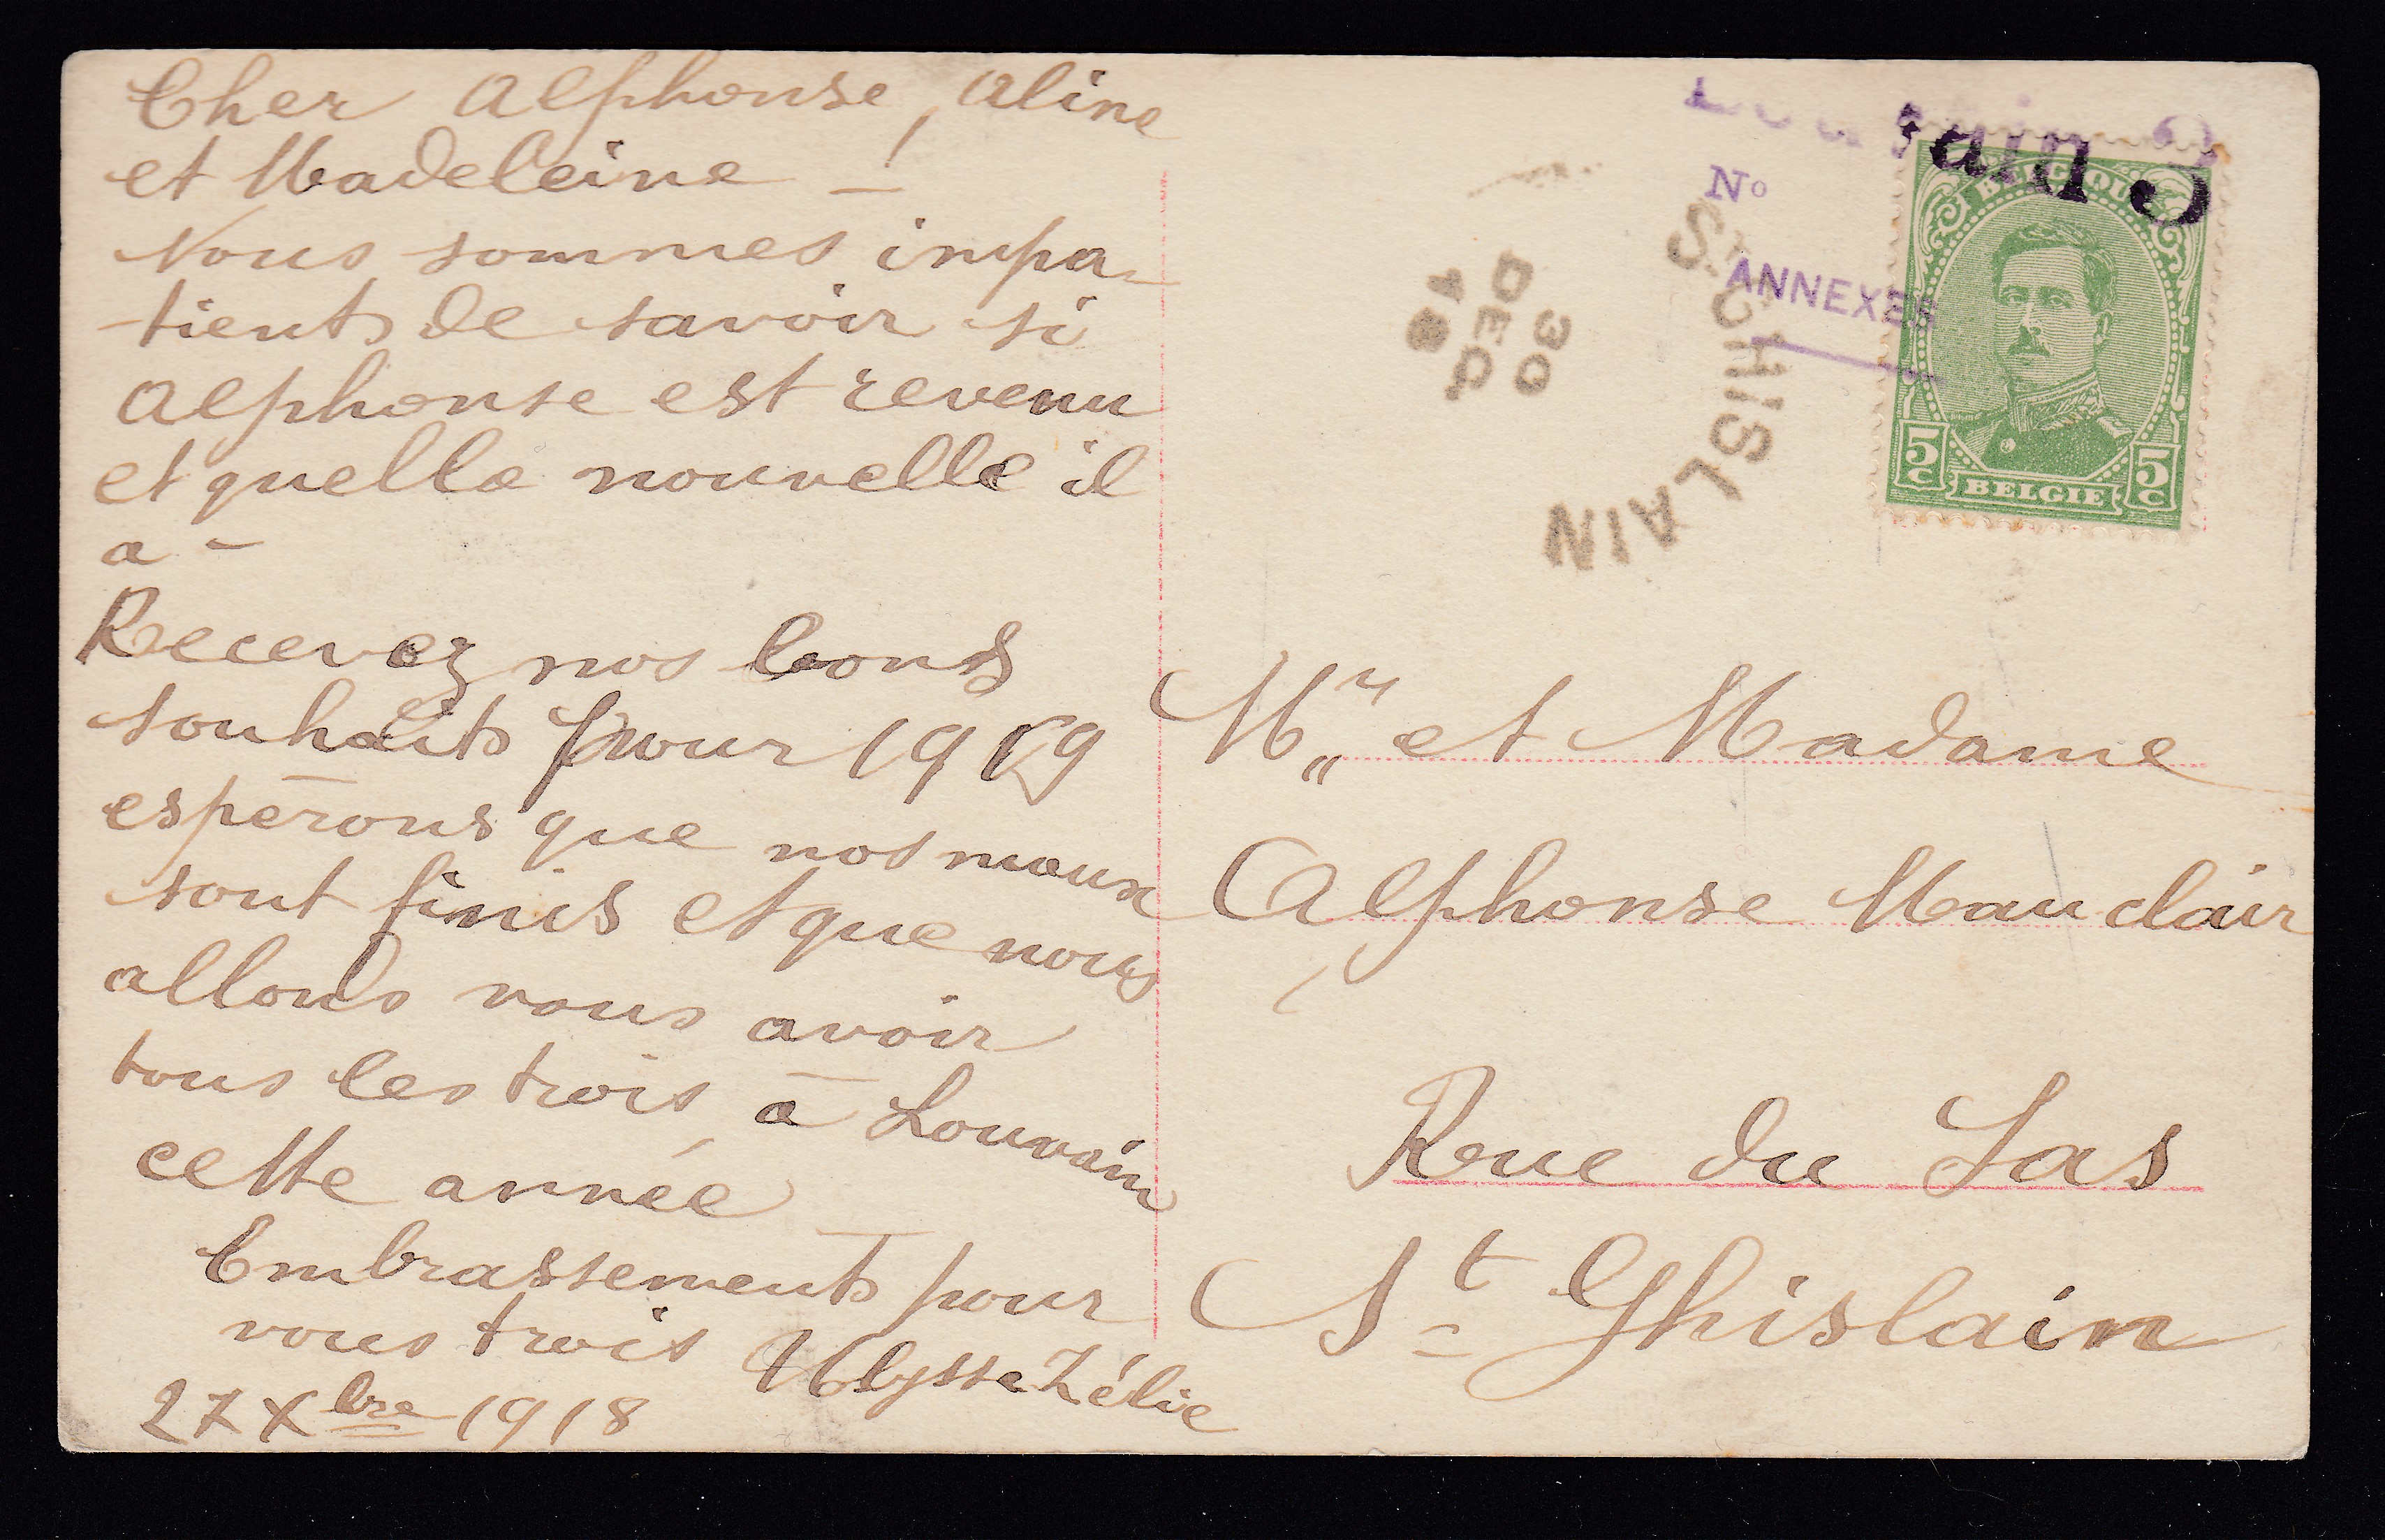 Cher Alphonse, Aline
et Madeleine —
Nous sommes impa-
tients de savoir si
Alphonse est revenu
et quelle nouvelle il
a -
Recevez nos bons
souhaits pour 1919
espérons que nos maux
sont finis et que nous
allons vous avoir
tous les trois à Louvain
cette année
Embrassements pour
vous trois Ulysse Zélie
27 Xbre 1918
Louvain 3
No
ANNEXES
ST GHISLAIN
30
DEC
18
BELGIQUE
5c 5c
BELGIE
Mr et Madame
Alphonse Mauclair
Rue du Sas
St Ghislain